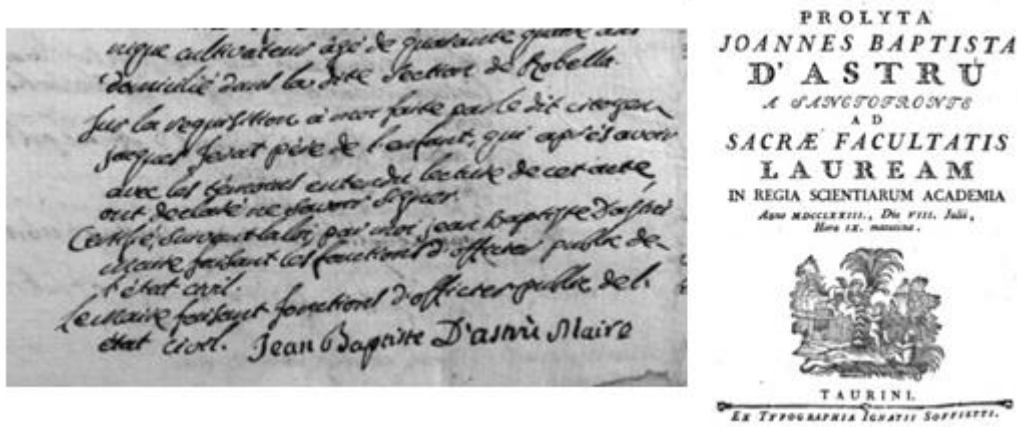 nique cultivateur âgé de quarante quatre ans
domicilié dans la dite section de Robella.
Sur la requisition à moi faite par le dit citoyen
jacques ferat père de l'enfant, qui après avoir
avec les temoins entendu lecture de cet acte
ont declaré ne savoir signer.
Certifié, suivant la loi, par moi jean Baptiste D'astrù
maire faisant les fonctions d'officier public de
l'état civil.
Le maire faisant fonctions d'officier public de l.
état civil. Jean Baptiste D'astrù Maire
PROLYTA
JOANNES BAPTISTA
D'ASTRÙ
A SANCTOFRONTE
AD
SACRÆ FACULTATIS
LAUREAM
IN REGIA SCIENTIARUM ACADEMIA
Anno MDCCLXXIII., Die VIII. Julii,
Hora IX. matutina.
TAURINI.
EX TYPOGRAPHIA IGNATII SOFFIETTI.